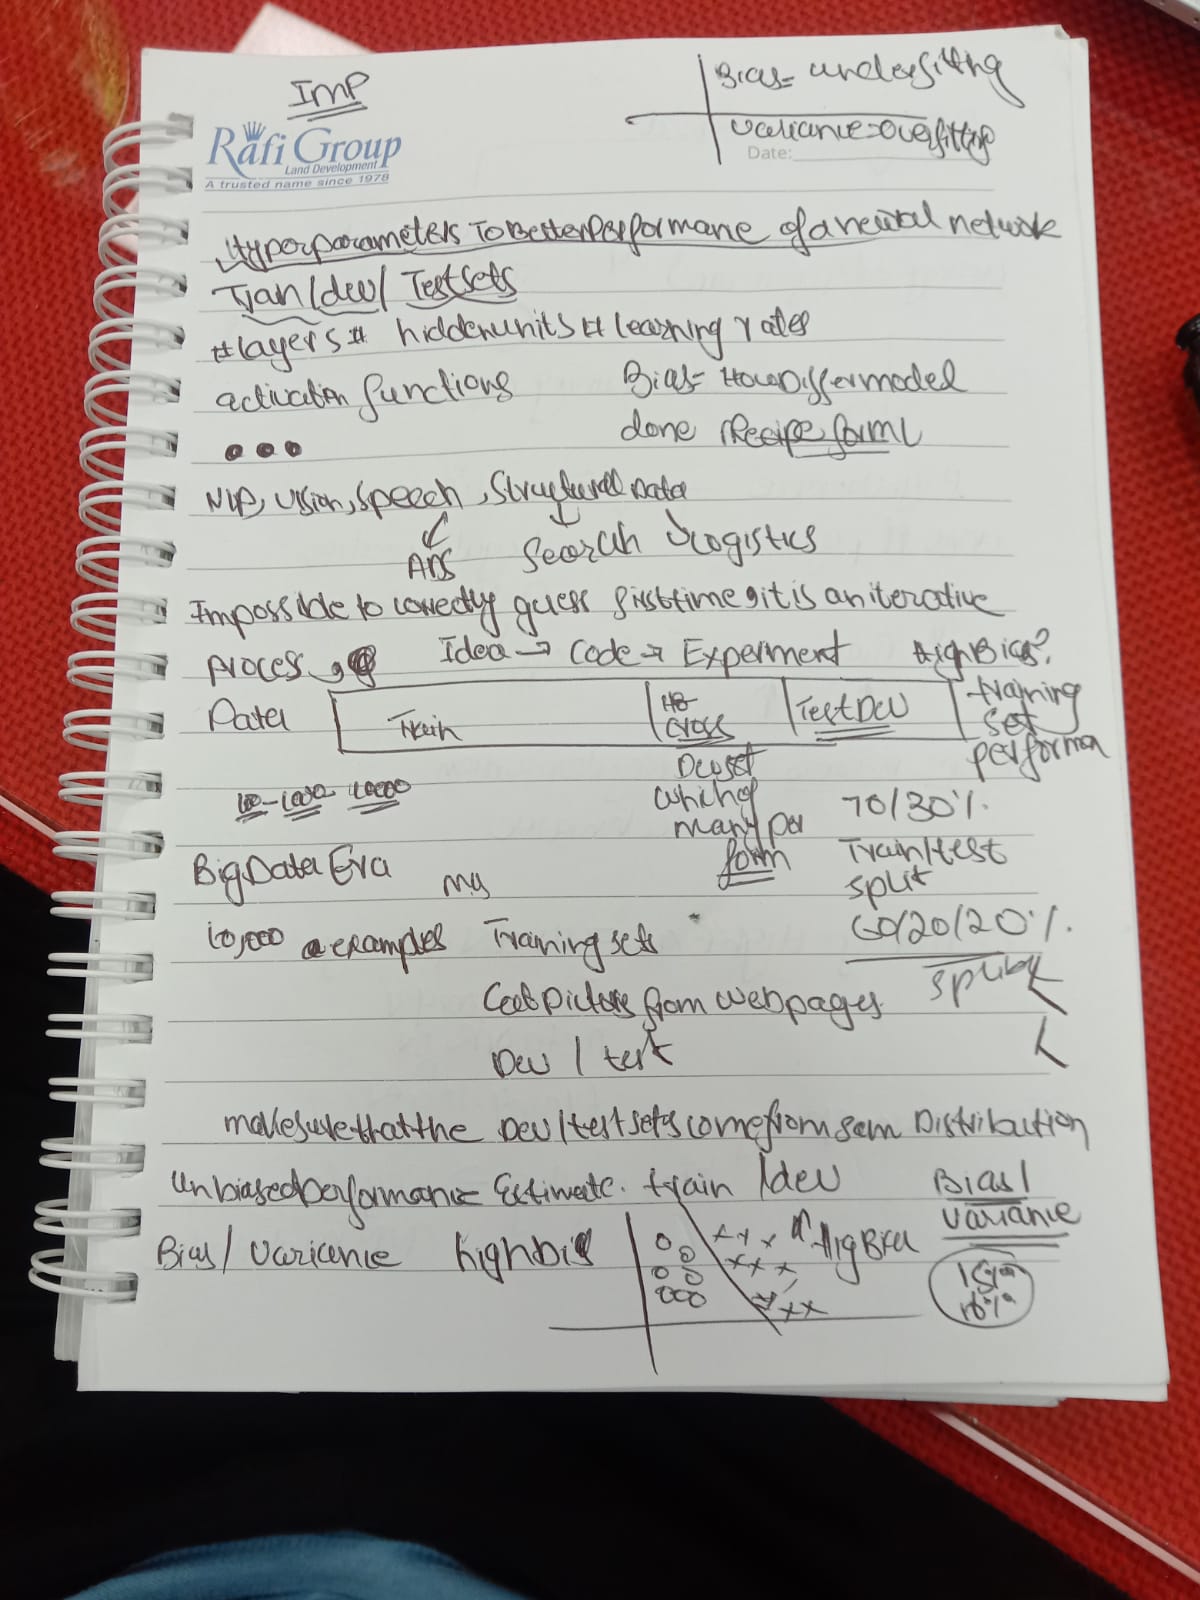 IMP
Bias= underfitting
variance=overfitting
Rafi Group
Land Development
A trusted name since 1978
Date:
Hyperparameters To Better Performane of a neural network
Tran/dev/ Test sets
#layers # hidden units # learning rates
activation functions
Bias= How Differ model
done Recipe for ML
...
NLP, Vision, Speech, Structural Data
ADS Search Logistics
Impossible to correctly guess first time it is an iterative
process, Idea → Code → Experment
High Bias?
training
set
performan
Data Train Cross Test Dev
Dev set
which of
many per
form
100-1000 10000
70/30%.
Train/test
split
Big Data Era
10,000 examples Training sets
60/20/20%.
Cat pictures from webpages.
Dev / test
make sure that the Dev/test sets come from sam Distribution
Unbiased performance Estimate. train /dev
Bias/
variance
Bias/ Variance high bis
15%
16%